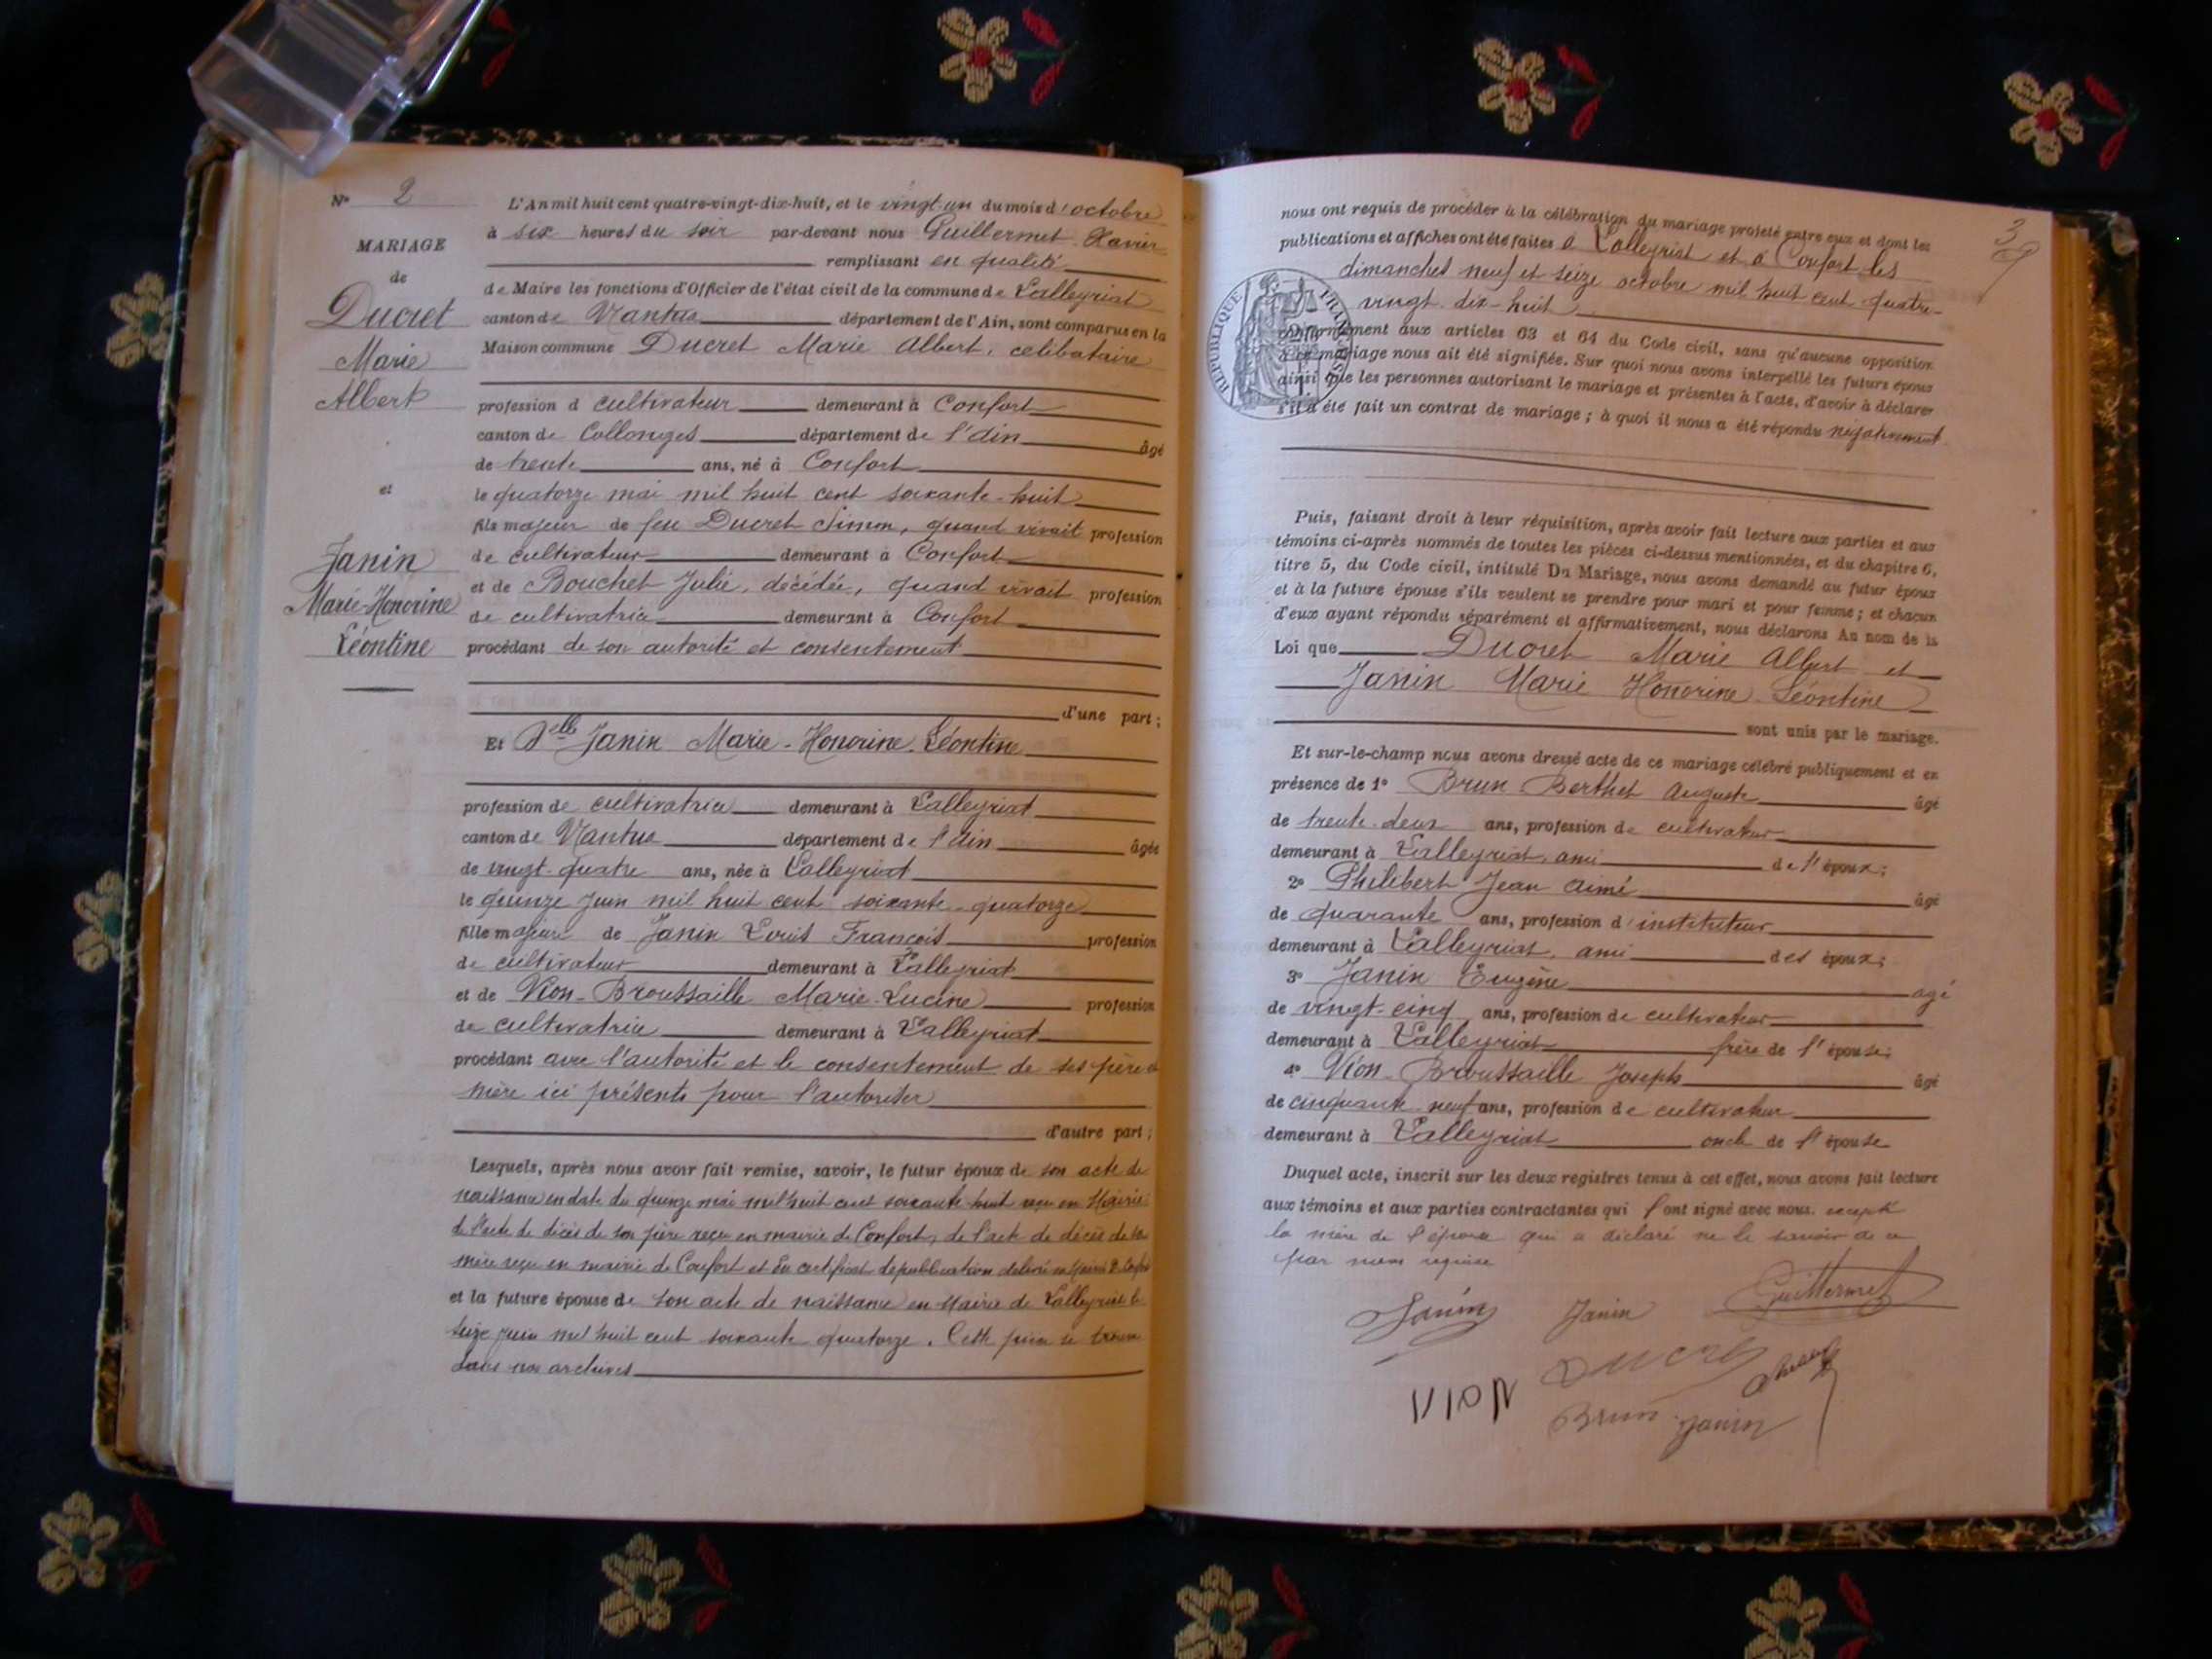 Nº 2
MARIAGE
de
Ducret
Marie
Albert
et
Janin
Marie-Honorine
Léontine
L'An mil huit cent quatre-vingt-dix-huit, et le vingt-un du mois d'octobre
à six heures du soir par-devant nous Guillermet Xavier
remplissant en qualité
de Maire les fonctions d'Officier de l'état civil de la commune de Lalleyriat
canton de Nantua département de l'Ain, sont comparus en la
Maison commune Ducret Marie Albert, célibataire
profession d cultivateur demeurant à Confort
canton de Collonges département de l'Ain âgé
de trente ans, né à Confort
le quatorze mai mil huit cent soixante-huit
fils majeur de feu Ducret Simon, quand vivait profession
de cultivateur demeurant à Confort
et de Bouchet Julie, décédée, quand vivait profession
de cultivatrice demeurant à Confort
procédant de son autorité et consentement
d'une part;
Et Delle Janin Marie-Honorine-Léontine
profession de cultivatrice demeurant à Lalleyriat
canton de Nantua département de l'Ain âgée
de vingt-quatre ans, née à Lalleyriat
le quinze juin mil huit cent soixante-quatorze
fille majeure de Janin Louis François profession
de cultivateur demeurant à Lalleyriat
et de Vion-Broussaille Marie-Lucine profession
de cultivatrice demeurant à Lalleyriat
procédant avec l'autorité et le consentement de ses père et
mère ici présents pour l'autoriser
d'autre part;
Lesquels, après nous avoir fait remise, savoir, le futur époux de son acte de
naissance en date du quinze mai mil huit cent soixante-huit reçu en Mairie
de l'acte de décès de son père reçu en mairie de Confort, de l'acte de décès de sa
mère reçu en mairie de Confort et du certificat de publication délivré en Mairie de Confort
et la future épouse de son acte de naissance en Mairie de Lalleyriat le
seize juin mil huit cent soixante quatorze. Cette pièce se trouve
dans nos archives
3
nous ont requis de procéder à la célébration du mariage projeté entre eux et dont les
publications et affiches ont été faites à Lalleyriat et à Confort les
dimanches neuf et seize octobre mil huit cent quatre-
vingt-dix-huit
RÉPUBLIQUE FRANÇAISE
conformément aux articles 63 et 64 du Code civil, sans qu'aucune opposition
à ce mariage nous ait été signifiée. Sur quoi nous avons interpellé les futurs époux
ainsi que les personnes autorisant le mariage et présentes à l'acte, d'avoir à déclarer
s'il a été fait un contrat de mariage; à quoi il nous a été répondu négativement
Puis, faisant droit à leur réquisition, après avoir fait lecture aux parties et aux
témoins ci-après nommés de toutes les pièces ci-dessus mentionnées, et du chapitre 6,
titre 5, du Code civil, intitulé Du Mariage, nous avons demandé au futur époux
et à la future épouse s'ils veulent se prendre pour mari et pour femme; et chacun
d'eux ayant répondu séparément et affirmativement, nous déclarons Au nom de la
Loi que Ducret Marie Albert et
Janin Marie Honorine Léontine
sont unis par le mariage.
Et sur-le-champ nous avons dressé acte de ce mariage célébré publiquement et en
présence de 1º Brun Berthet Auguste âgé
de trente-deux ans, profession de cultivateur
demeurant à Lalleyriat, ami de l'époux;
2º Philibert Jean Aimé âgé
de quarante ans, profession d'instituteur
demeurant à Lalleyriat, ami des époux;
3º Janin Eugène agé
de vingt-cinq ans, profession de cultivateur
demeurant à Lalleyriat frère de l'épouse;
4º Vion-Broussaille Joseph âgé
de cinquante-neuf ans, profession de cultivateur
demeurant à Lalleyriat oncle de l'épouse
Duquel acte, inscrit sur les deux registres tenus à cet effet, nous avons fait lecture
aux témoins et aux parties contractantes qui l'ont signé avec nous. excepté
la mère de l'épouse qui a déclaré ne le savoir de ce
par nous requise
Janin Janin Guillermet
Ducret
VION
Brun Janin